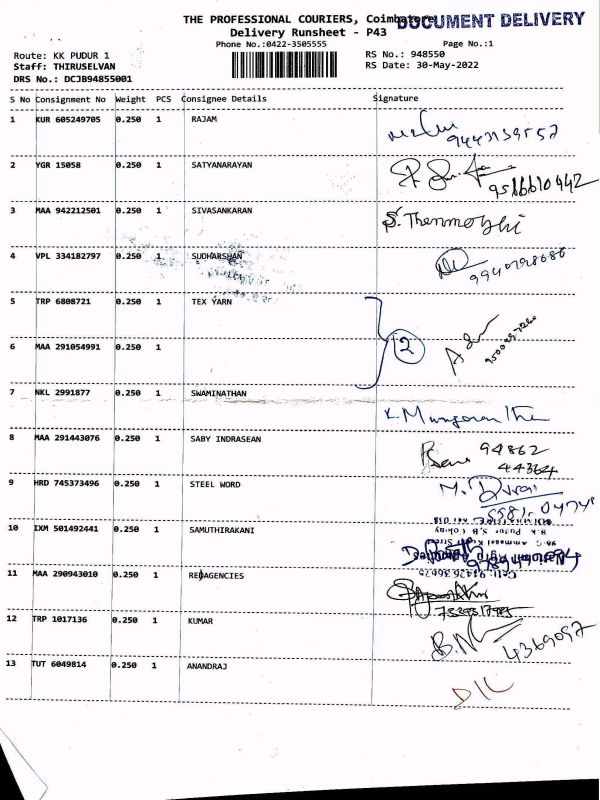 THE PROFESSIONAL COURIERS, Coimbatore
DOCUMENT DELIVERY
Delivery Runsheet - P43
Phone No.:0422-3505555
Page No.:1
Route: KK PUDUR 1
RS No.: 948550
Staff: THIRUSELVAN
RS Date: 30-May-2022
DRS No.: DCJB94855001
S No Consignment No Weight PCS Consignee Details Signature
1 KUR 605249705 0.250 1 RAJAM
2 YGR 15058 0.250 1 SATYANARAYAN
3 MAA 942212501 0.250 1 SIVASANKARAN S. Thenmozhi
4 VPL 334182797 0.250 1 SUDHARSHAN
5 TRP 6808721 0.250 1 TEX YARN
2
6 MAA 291054991 0.250 1
7 NKL 2991877 0.250 1 SWAMINATHAN
8 MAA 291443076 0.250 1 SABY INDRASEAN 94862
44364
9 HRD 745373496 0.250 1 STEEL WORD
10 IXM 501492441 0.250 1 SAMUTHIRAKANI
11 MAA 290943010 0.250 1 REDAGENCIES
12 TRP 1017136 0.250 1 KUMAR
4369097
13 TUT 6049814 0.250 1 ANANDRAJ